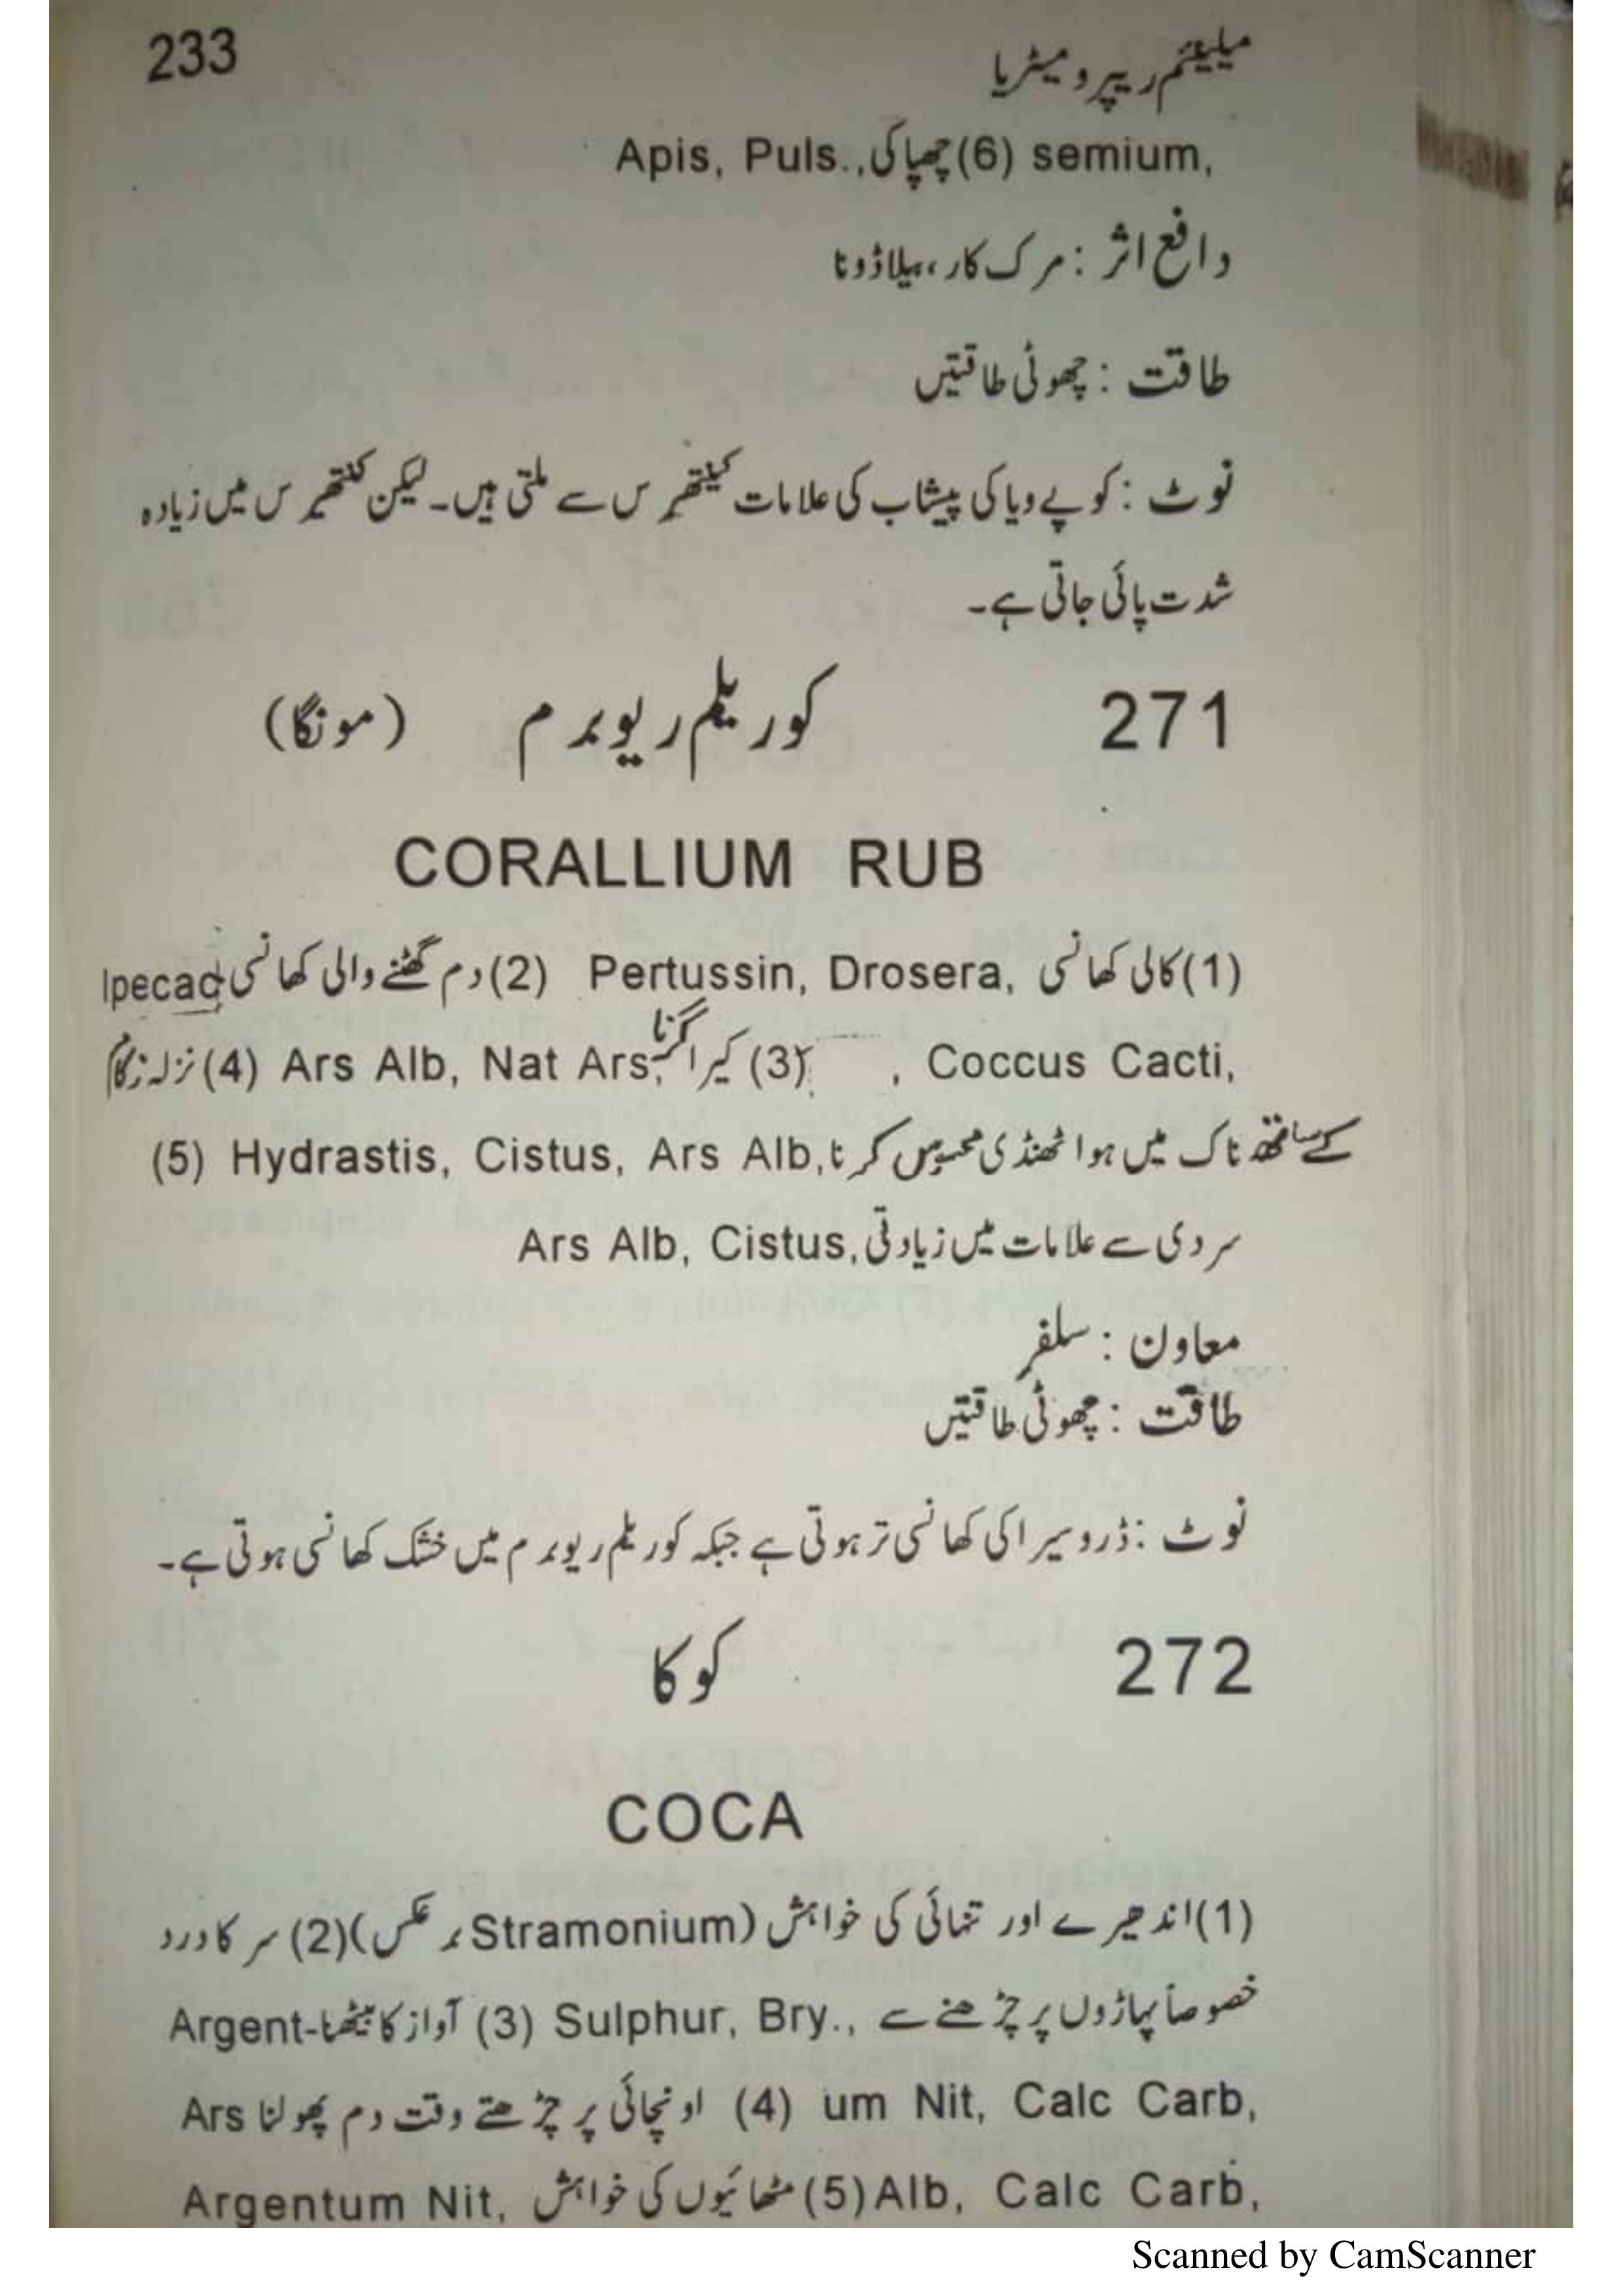 میلینئم ریپرو میٹریا 233
semium, (6) چھپاکی, Apis, Puls.,
دافع اثر : مرک کار، بیلاڈونا
طاقت : چھوٹی طاقتیں
نوٹ : کوپے ویا کی پیشاب کی علامات کینتھرس سے ملتی ہیں۔ لیکن کنتھرس میں زیادہ
شدت پائی جاتی ہے۔
271 کوریلم ریوبرم (مونگا)
CORALLIUM RUB
(1) کالی کھانسی Pertussin, Drosera, (2) دم گھٹنے والی کھانسی Ipecac
Coccus Cacti, , (3) کیرا گرنا Ars Alb, Nat Ars, (4) نزلہ زکام
کے ساتھ ناک میں ہوا ٹھنڈی محسوس کرنا, Hydrastis, Cistus, Ars Alb, (5)
سردی سے علامات میں زیادتی, Ars Alb, Cistus,
معاون : سلفر
طاقت : چھوٹی طاقتیں
نوٹ : ڈروسیرا کی کھانسی تر ہوتی ہے جبکہ کوریلم ریوبرم میں خشک کھانسی ہوتی ہے۔
272 کوکا
COCA
(1) اندھیرے اور تنہائی کی خواہش (Stramonium برعکس) (2) سر کا درد
خصوصاً پہاڑوں پر چڑھنے سے Sulphur, Bry., (3) آواز کا بیٹھنا Argent-
um Nit, Calc Carb, (4) اونچائی پر چڑھتے وقت دم پھولنا Ars
Alb, Calc Carb, (5) مٹھائیوں کی خواہش Argentum Nit,
Scanned by CamScanner